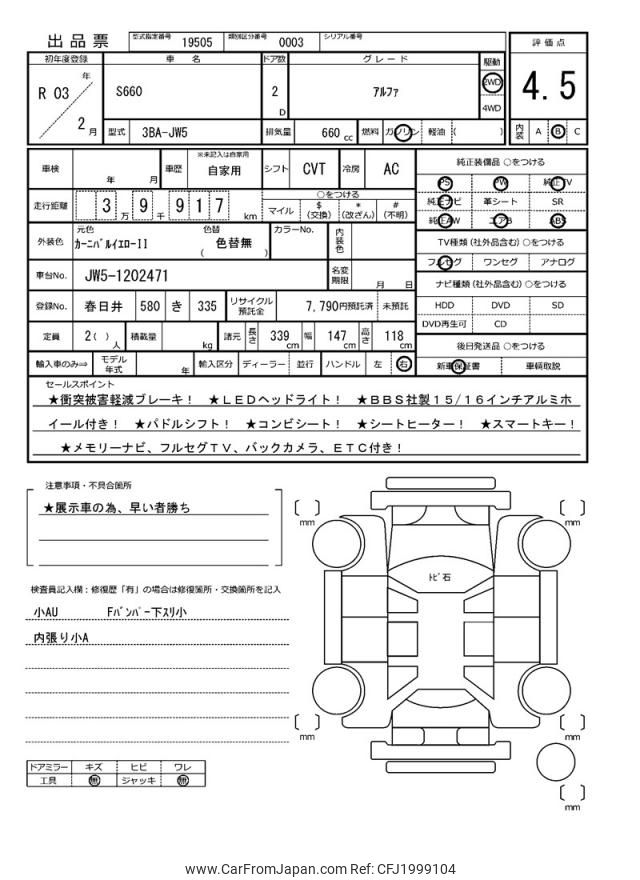 出品票 型式指定番号 19505 類別区分番号 0003 シリアル番号
評価点
4.5
内装 A B C
初年度登録 車名 ドア数 グレード 駆動
R 03 年 2 月
S660
2 D
アルファ
2WD
4WD
型式 3BA-JW5 排気量 660 cc 燃料 ガソリン 軽油 ( )
車検 年 月 車歴 ※未記入は自家用 自家用 シフト CVT 冷房 AC
走行距離 3 万 9 千 9 1 7 km
○をつける
マイル $ (交換) * (改ざん) # (不明)
外装色 元色 カーニバルイエローII 色替 ( 色替無 ) カラーNo. 内装色
車台No. JW5-1202471 名変期限 月 日
登録No. 春日井 580 き 335 リサイクル預託金 7,790円預託済 未預託
定員 2( )人 積載量 kg 諸元 長さ 339 cm 幅 147 cm 高さ 118 cm
輸入車のみ⇒ モデル年式 年 輸入区分 ディーラー 並行 ハンドル 左 右
純正装備品 ○をつける
PS PW 純正TV
純正ナビ 革シート SR
純正AW エアB ABS
TV種類 (社外品含む) ○をつける
フルセグ ワンセグ アナログ
ナビ種類 (社外品含む) ○をつける
HDD DVD SD
DVD再生可 CD
後日発送品 ○をつける
新車保証書 車輌取説
セールスポイント
★衝突被害軽減ブレーキ! ★LEDヘッドライト! ★BBS社製15/16インチアルミホ
イール付き! ★パドルシフト! ★コンビシート! ★シートヒーター! ★スマートキー!
★メモリーナビ、フルセグTV、バックカメラ、ETC付き!
注意事項・不具合箇所
★展示車の為、早い者勝ち
検査員記入欄:修復歴「有」の場合は修復箇所・交換箇所を記入
小AU Fバンパー下スリ小
内張り小A
ドアミラー キズ ヒビ ワレ
工具 無 ジャッキ 無
mm
mm
トビ石
mm
mm
mm
www.CarFromJapan.com Ref: CFJ1999104